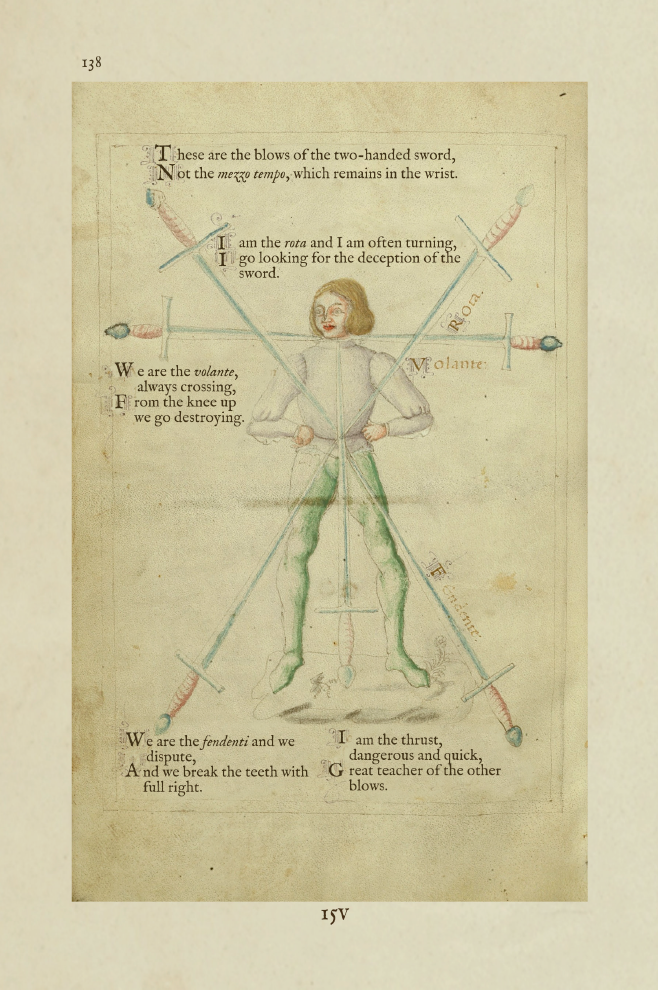 138
These are the blows of the two-handed sword,
Not the mezzo tempo, which remains in the wrist.
I am the rota and I am often turning,
I go looking for the deception of the
sword.
Rota.
Volante.
We are the volante,
always crossing,
From the knee up
we go destroying.
Fendente.
We are the fendenti and we
dispute,
And we break the teeth with
full right.
I am the thrust,
dangerous and quick,
Great teacher of the other
blows.
15V